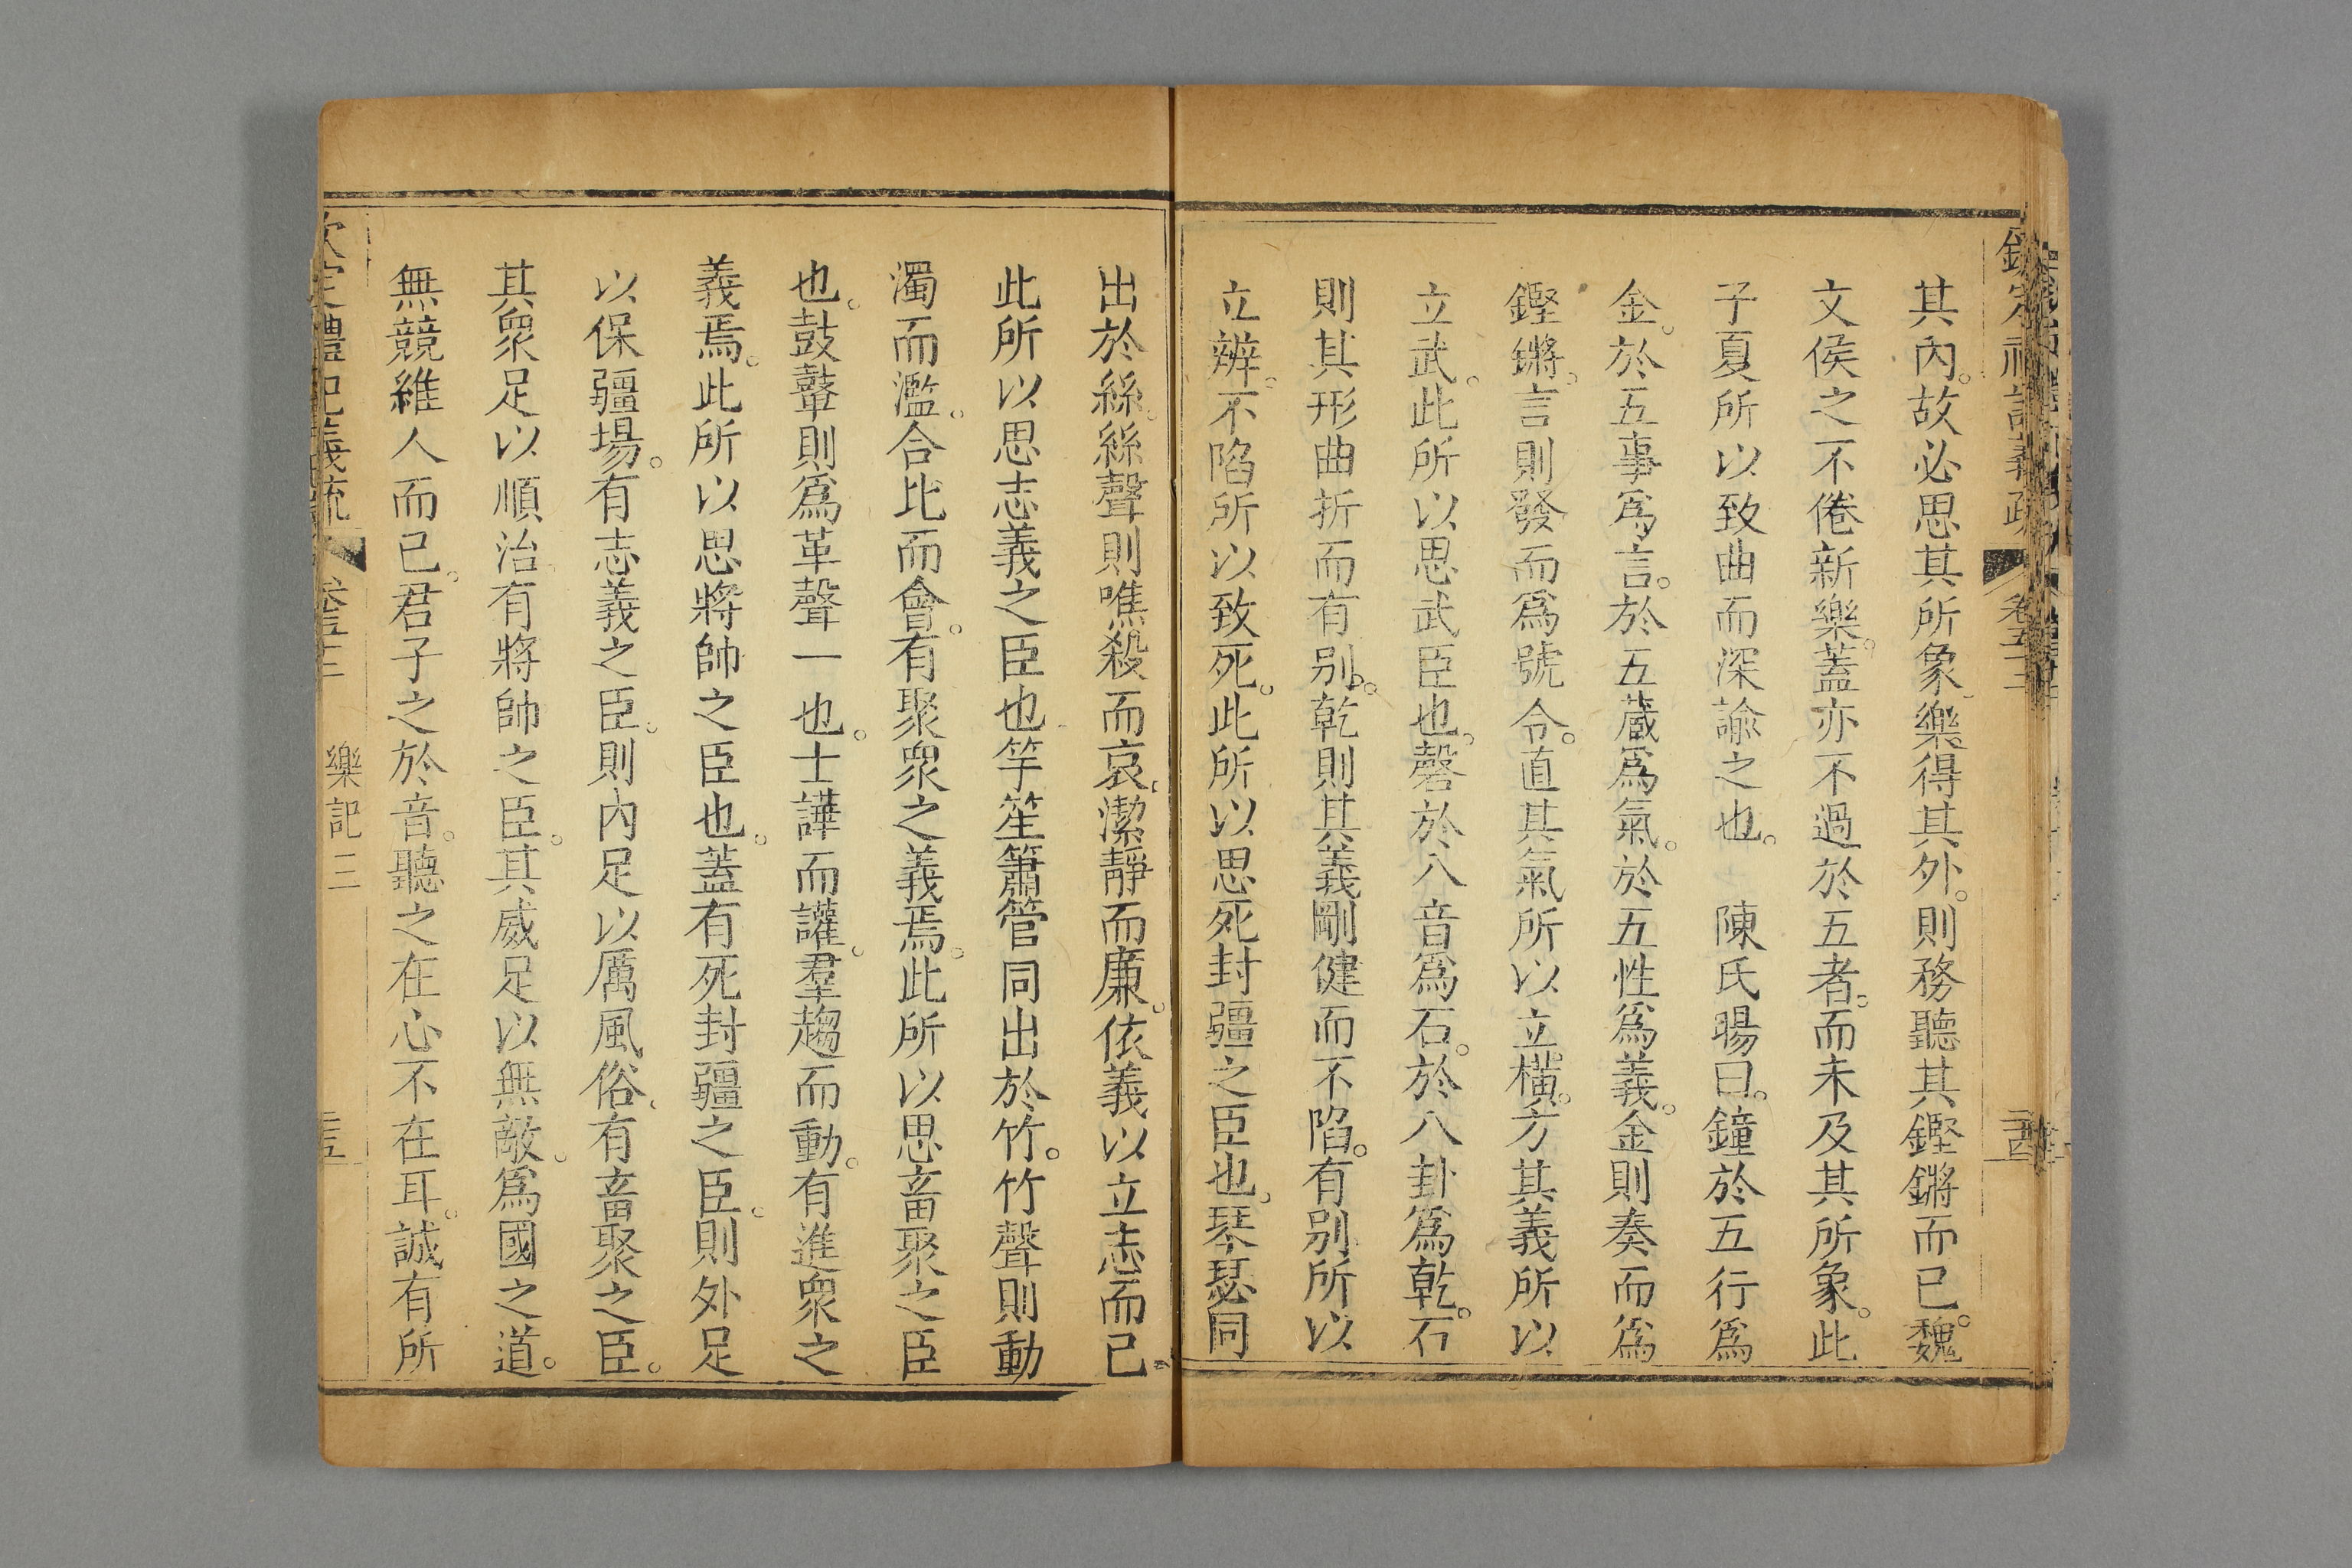 其內。故必思其所象。樂得其外。則務聽其鏗鏘而已。魏
文侯之不倦新樂。蓋亦不過於五者。而未及其所象。此
子夏所以致曲而深諭之也。　陳氏暘曰。鐘於五行爲
金。於五事爲言。於五藏爲氣。於五性爲義。金則奏而爲
鏗鏘。言則發而爲號令。直其氣所以立橫。方其義所以
立武。此所以思武臣也。磬於八音爲石。於八卦爲乾。石
則其形曲折而有別。乾則其義剛健而不陷。有別所以
立辨。不陷所以致死。此所以思死封疆之臣也。琴瑟同
出於絲。絲聲則噍殺而哀。潔靜而廉。依義以立志而已。
此所以思志義之臣也。竽笙簫管同出於竹。竹聲則動
濁而濫。合比而會。有聚眾之義焉。此所以思畜聚之臣
也。鼓鼙則爲革聲一也。士譁而讙。羣趨而動。有進眾之
義焉。此所以思將帥之臣也。蓋有死封疆之臣。則外足
以保疆場。有志義之臣。則內足以厲風俗。有畜聚之臣。
其眾足以順治。有將帥之臣。其威足以無敵。爲國之道。
無競維人而已。君子之於音。聽之在心不在耳。誠有所
樂記三